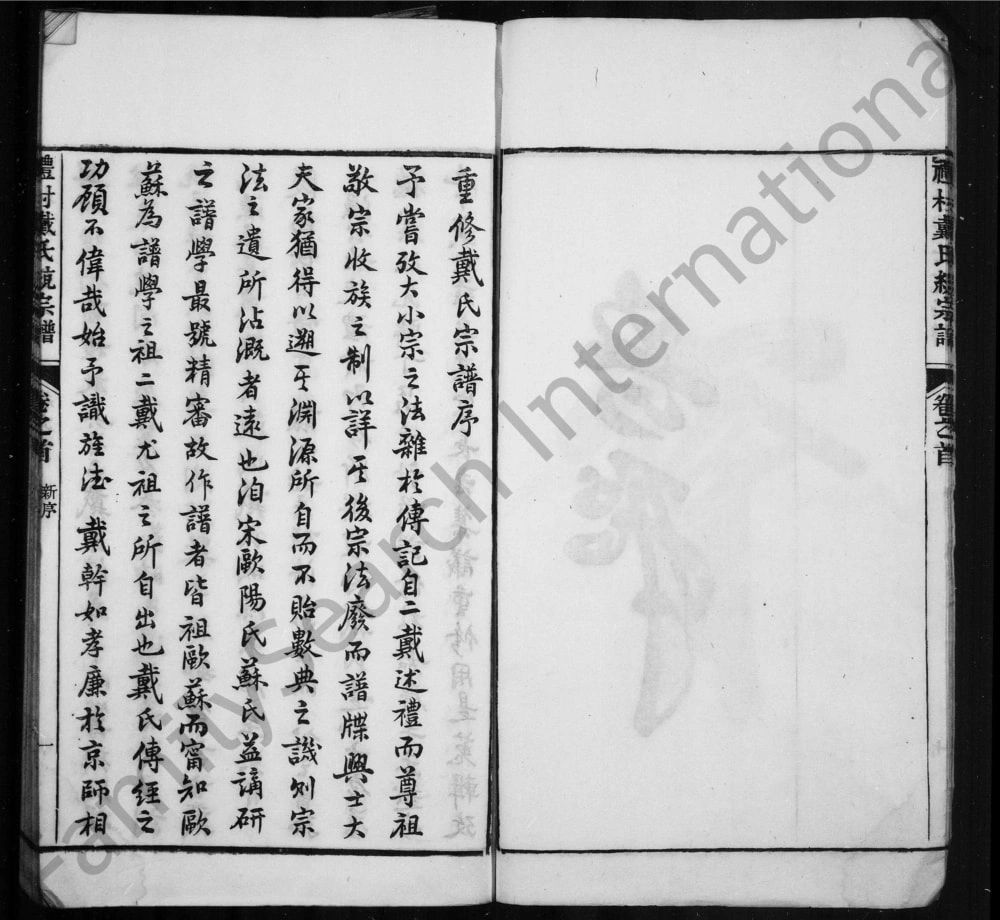 禮村戴氏統宗譜 卷之首
重修戴氏宗譜序
予嘗攷大小宗之法雜於傳記自二戴述禮而尊祖
敬宗收族之制以詳其後宗法廢而譜牒興士大
夫家猶得以遡其淵源所自而不貽數典之譏矧宗
法之遺所沾溉者遠也洎宋歐陽氏蘇氏益講研
之譜學最號精審故作譜者皆祖歐蘇而甯知歐
蘇為譜學之祖二戴尤祖之所自出也戴氏傳經之
功顧不偉哉始予識旌德 戴幹如孝廉於京師相
禮村戴氏統宗譜 卷之首 新序 一
Family Search International